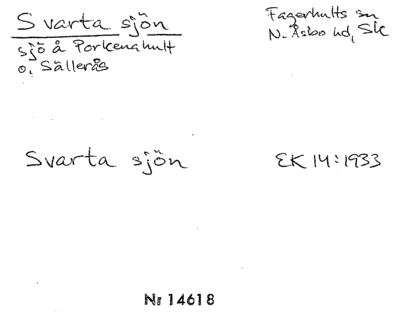 Svarta sjön
Fagerhults sn
sjö å Porkenahult
N. Åsbo hd, Sk
o. Sällerås
Svarta sjön
EK 14:1933
Nr 14618